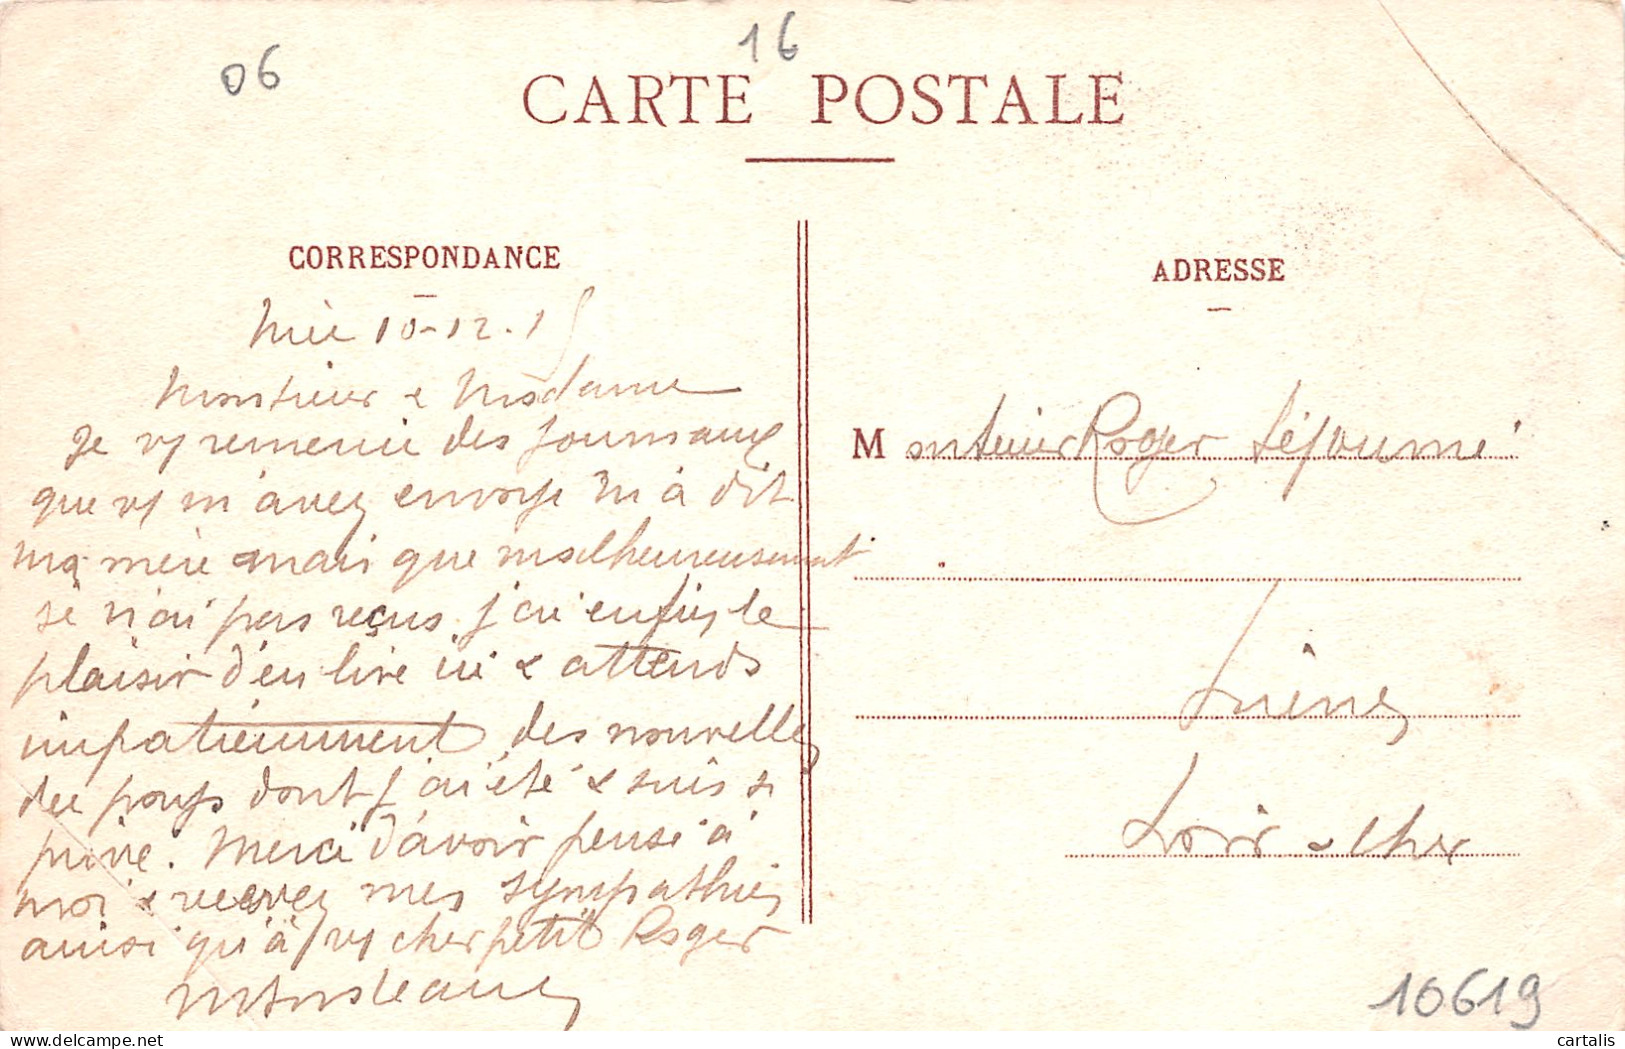 06
16
CARTE POSTALE
CORRESPONDANCE
10-12.15
Monsieur & Madame
Je vs remercie des journaux
que vs m'avez envoyé m'a dit
ma mère mais que malheureusement
je n'ai pas reçus. j'ai enfin le
plaisir d'en lire ici & attends
impatiemment des nouvelles
du pays dont j'ai été & suis si
privé. Merci d'avoir pensé à
moi & recevez mes sympathies
ainsi qu'à vs cher petit Roger
ADRESSE
Monsieur Roger Séjourné
Suèvres
Loir & Cher
10619
cartalis
www.delcampe.net